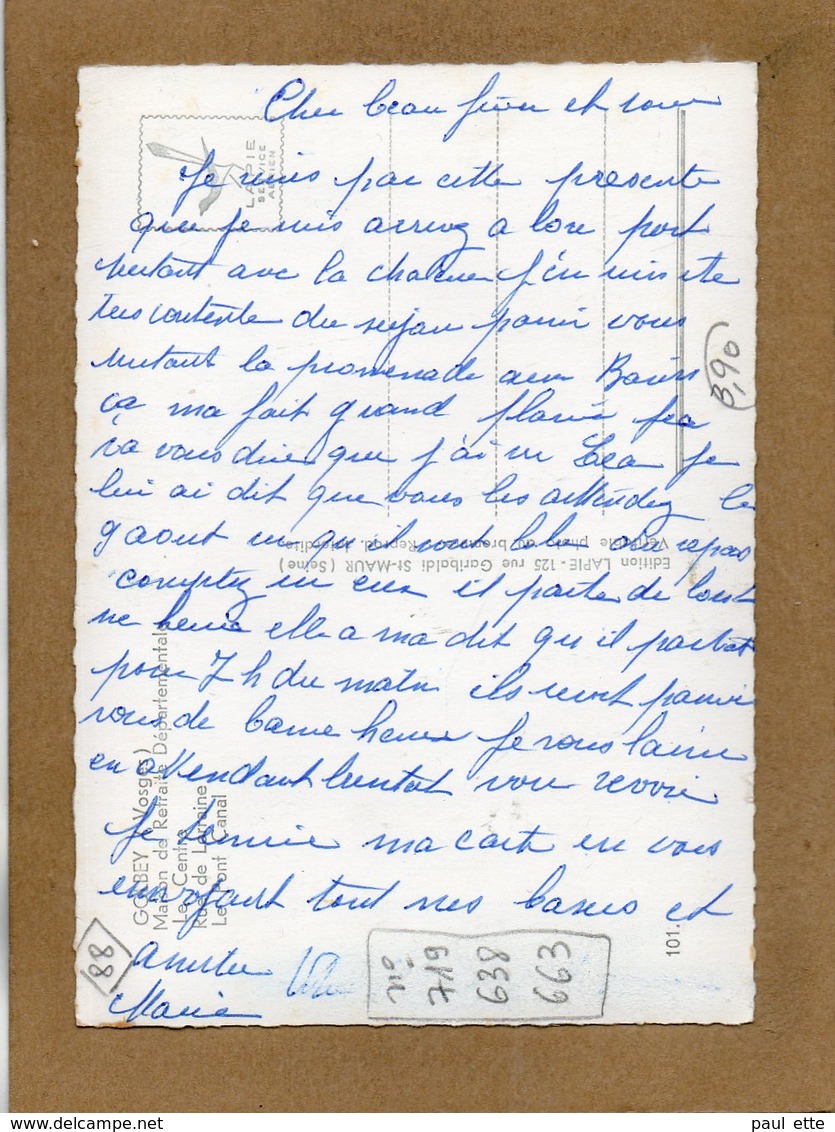 Cher beau frère et soeur
Je par cette présente
que je suis arrivez a bon port
avec la chaleur j'en suis
très contente du séjour parmi vous
surtout la promenade aux Bains
ça ma fait grand plaisir
vous dire que j'ai vu Léa je
lui ai dit que vous les attendez le
9 aout repas
comptez sur eux il parte de
ne heure elle a ma dit qu'il partait
pour 7 h du matin ils seront parmi
vous de bonne heure Je vous laisse
en attendant bientot vous revoir
Je termine ma carte en vous
envoyant tout nos baises et
amitié
Marie
LAPIE
SERVICE
AERIEN
3,90
Edition LAPIE - 125 rue Garibaldi St-MAUR (Seine)
Véritable photo au bromure Reprod. Interdite
GOLBEY (Vosges)
Maison de Retraite Départementale
Le Centre
Rue de Lorraine
Le Pont Canal
101.
88
n°
719
638
663
paul ette